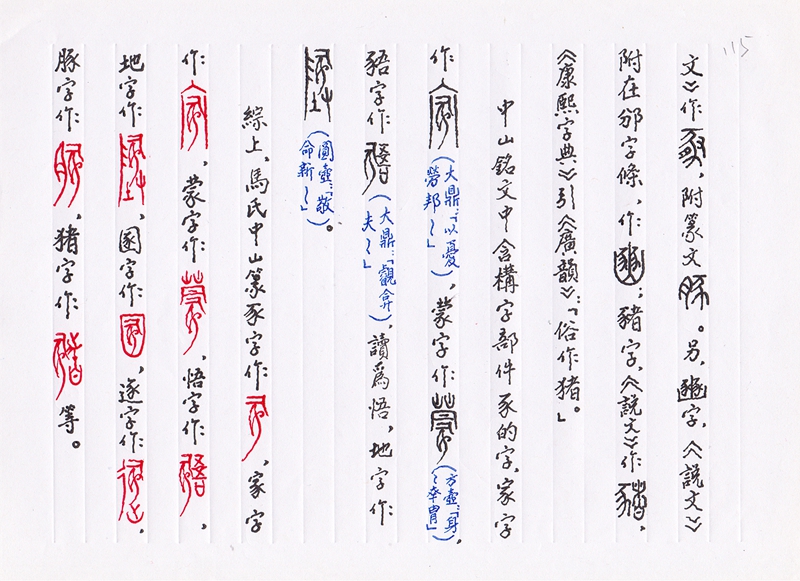 115
文》作,附篆文。另,豳字,《說文》
附在邠字條,作;豬字,《說文》作,
《康熙字典》引《廣韻》:「俗作猪。」
中山銘文中含構字部件豕的字,家字
作(大鼎:「以憂勞邦~」),蒙字作(方壺:「身~胄」),
字作(大鼎:「觀弇夫~」),讀爲悟,地字作
(圓壺:「敬命新~」)。
綜上,馬氏中山篆豕字作,家字
作,蒙字作,悟字作,
地字作:,圂字作,逐字作,
豚字作:,猪字作等。